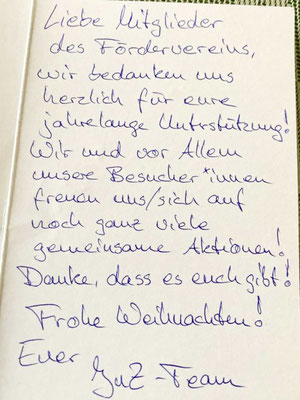 Liebe Mitglieder
des Fördervereins,
wir bedanken uns
herzlich für eure
jahrelange Unterstützung!
Wir und vor Allem
unsere Besucher*innen
freuen uns/sich auf
noch ganz viele
gemeinsame Aktionen!
Danke, dass es euch gibt!
Frohe Weihnachten!
Euer
JuZ-Team